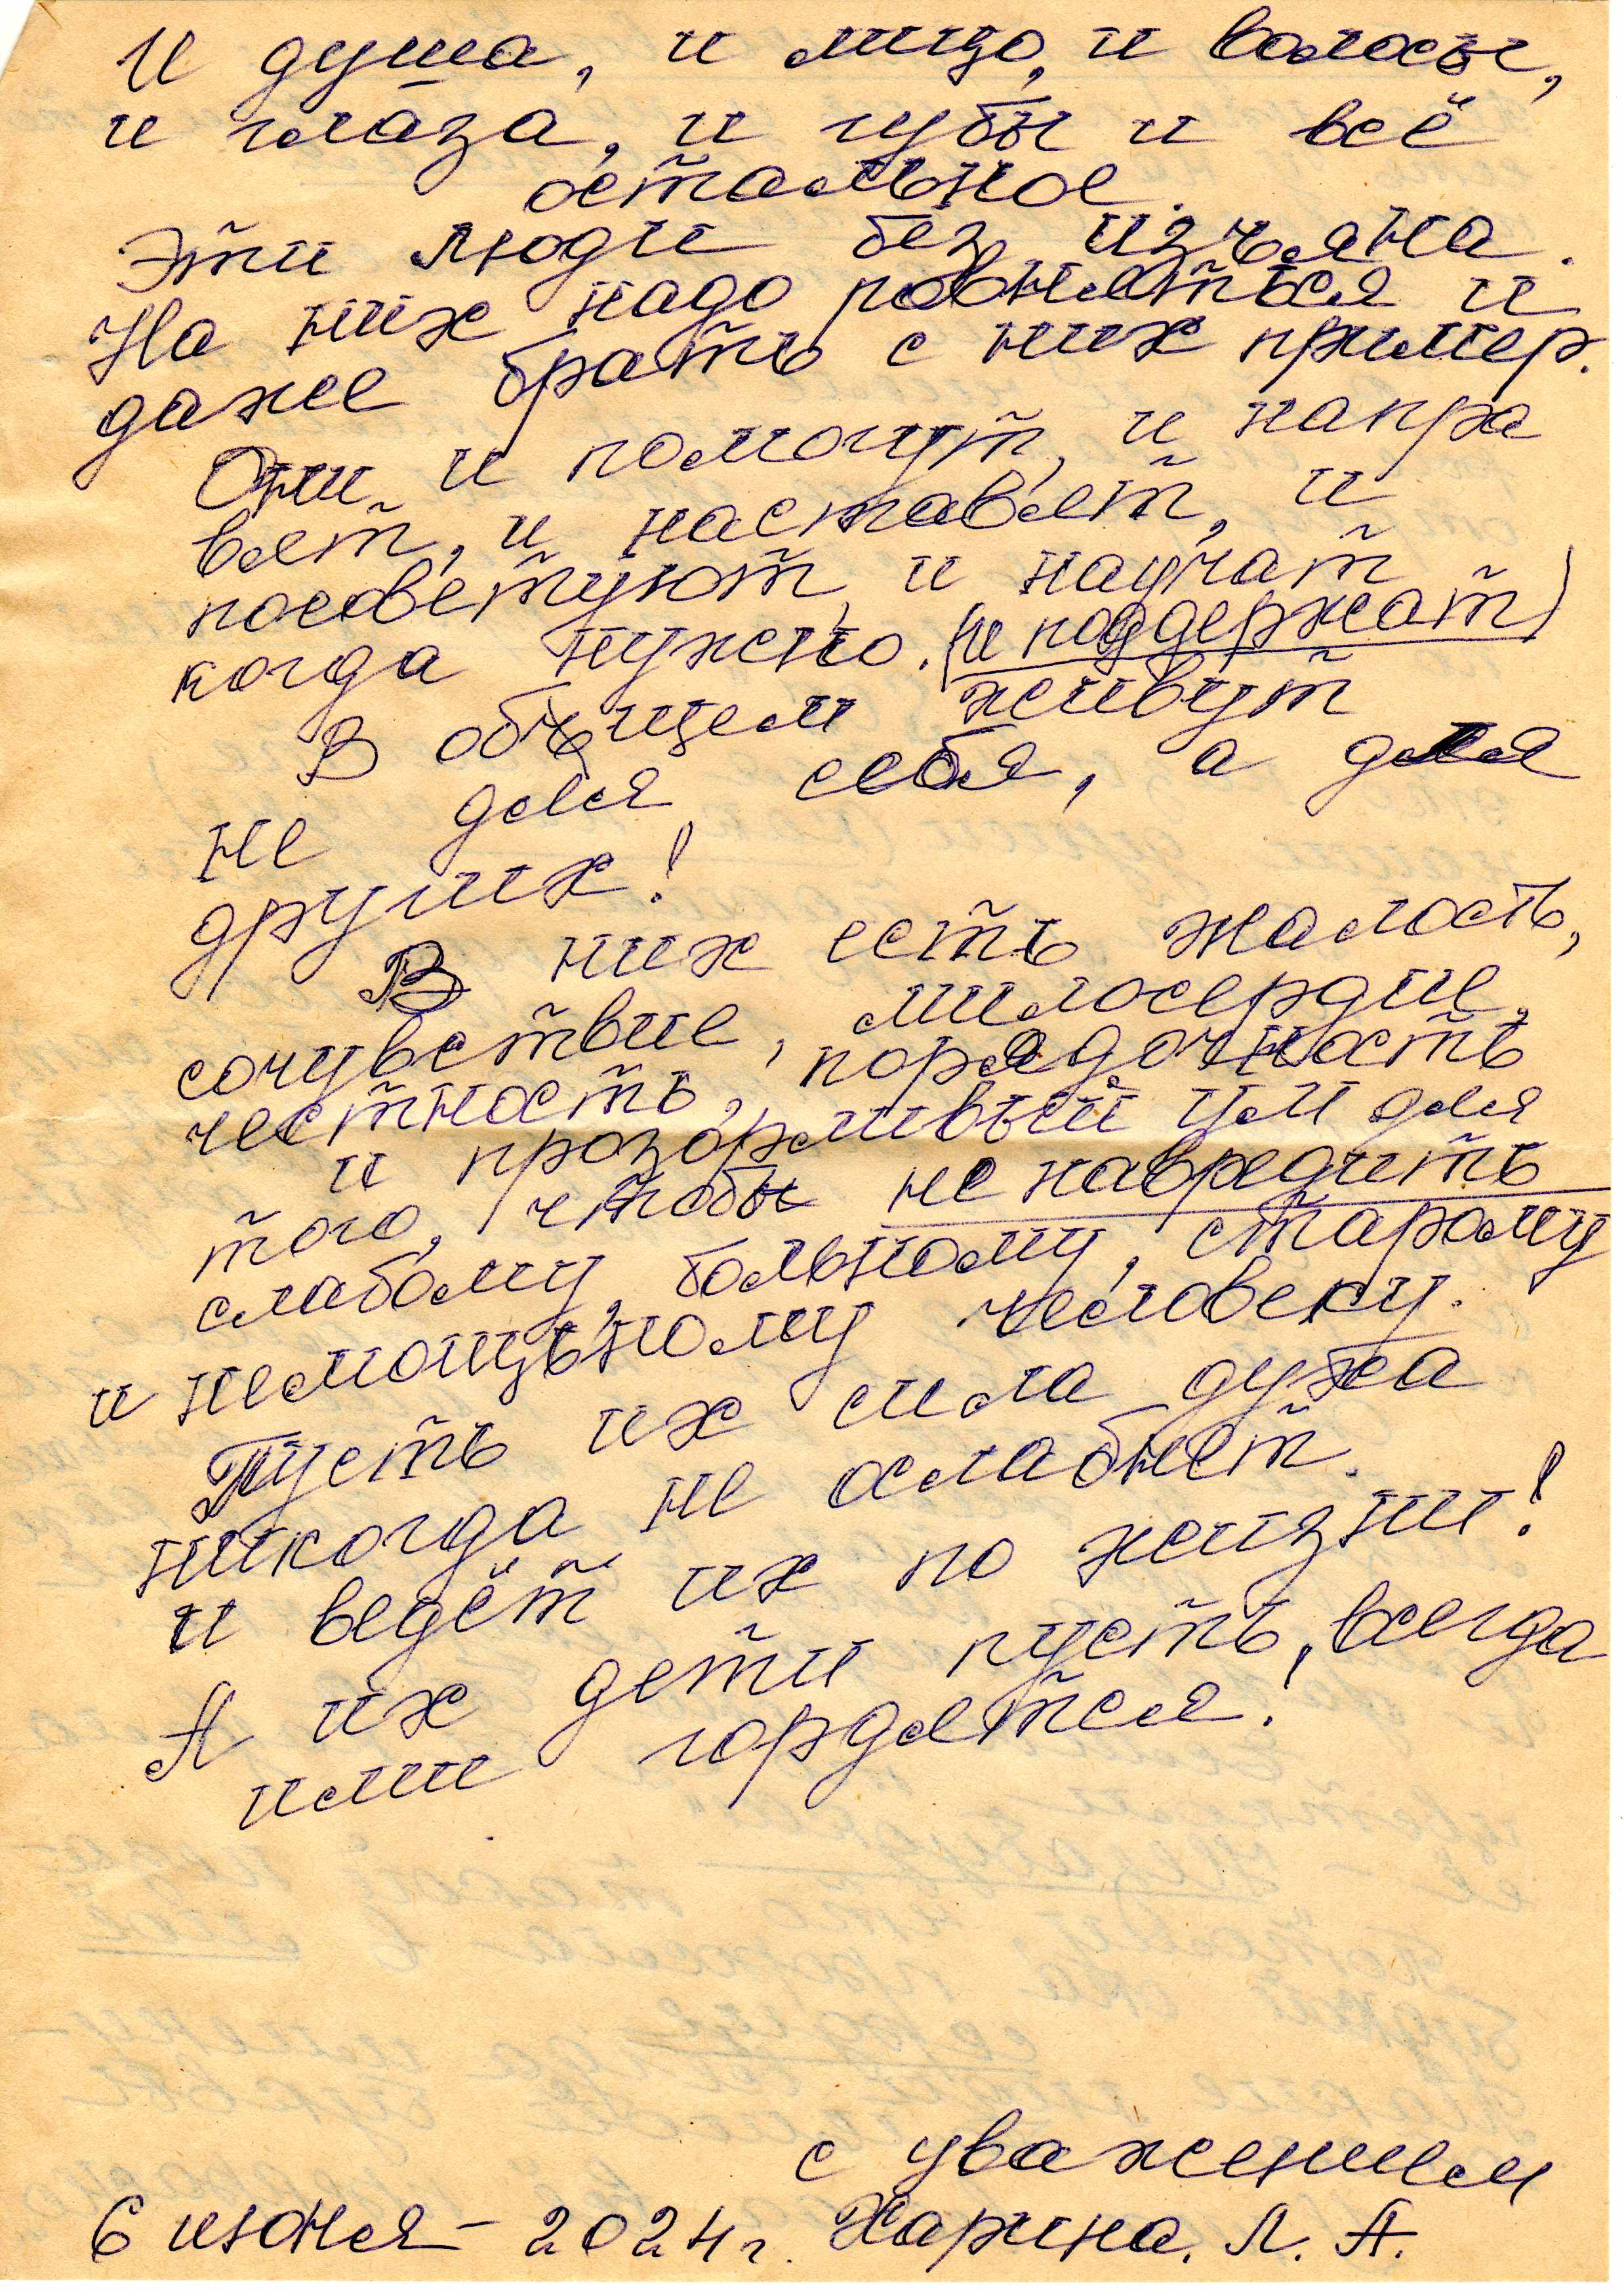 И душа, и лицо, и волосы,
и глаза, и губы и всё
остальное.
Эти люди без изъяна.
На них надо ровняться и
даже брать с них пример.
Они и помогут, и напра
вят, и наставят, и
посоветуют, и научат
когда нужно. (и поддержат)
В общем живут
не для себя, а для
других!
В них есть жалость,
сочувствие, милосердие,
честность, порядочность
и прозорливый ум для
того, чтобы не навредить
слабому, больному, старому
и немощьному человеку.
Пусть их сила духа
никогда не ослабнет.
и ведёт их по жизни!
А их дети пусть, всегда
ими гордятся!
с уважением
6 июня - 2024 г. Харина. Л. А.